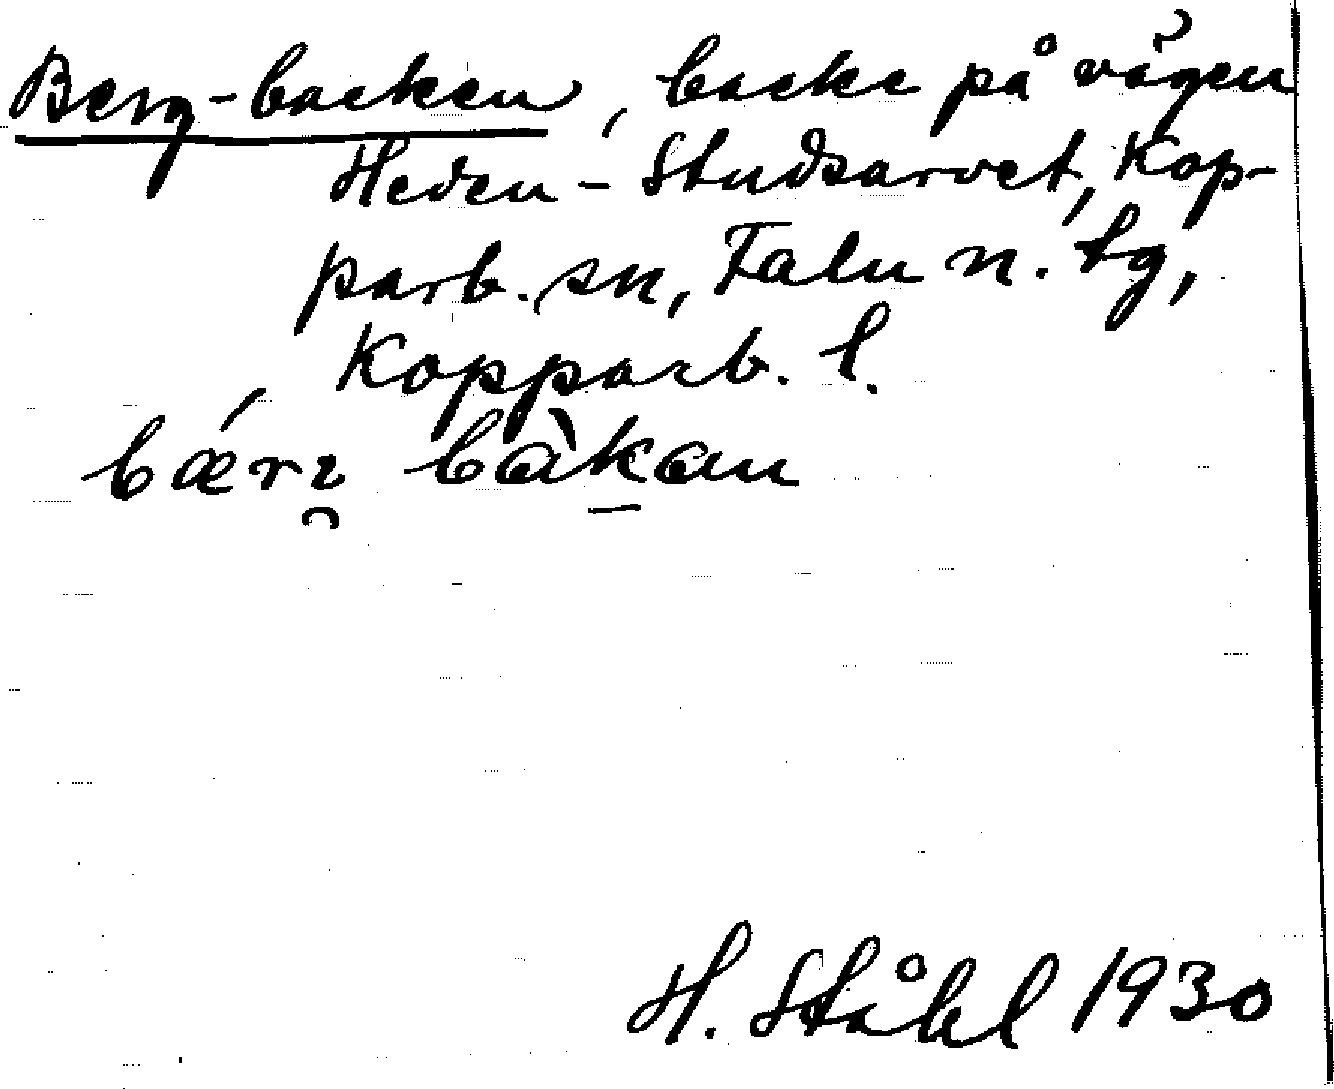 Berg-backen, backe på vägen
Heden - Studsarvet, Kop-
parb. sn, Falu n. tg,
Kopparb. l.
bǽrı̯ bàk̠an
H. Ståhl 1930